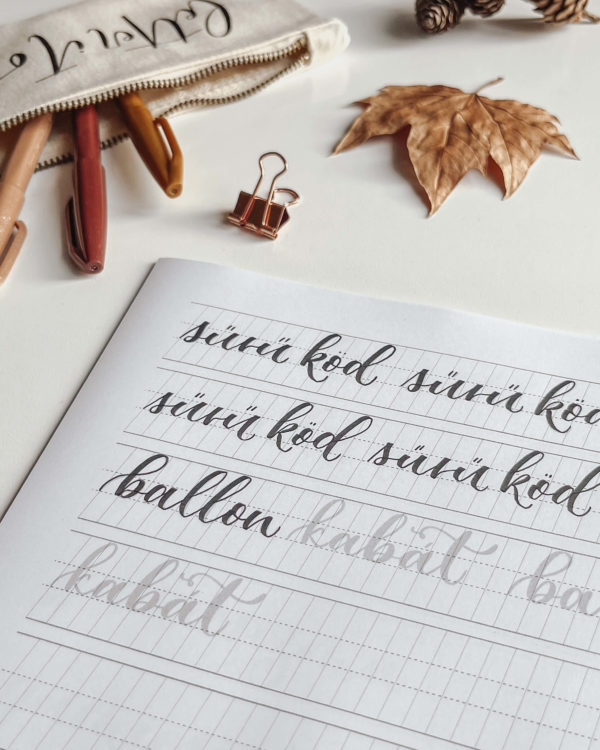 sűrű köd sűrű köd
sűrű köd sűrű köd
ballon kabát ba
kabát